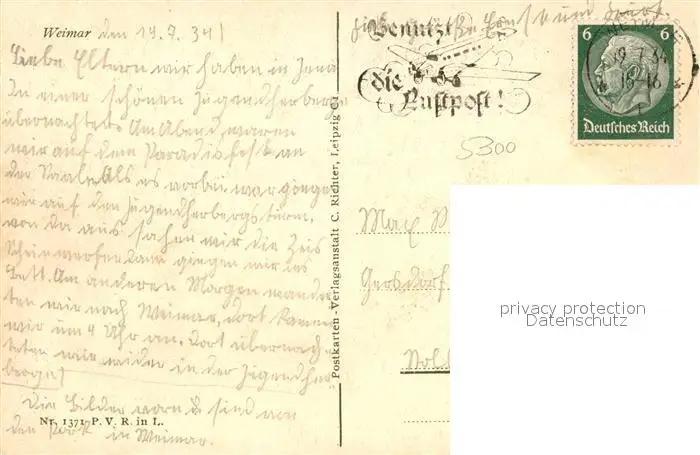 Weimar den 19.7.34
Liebe Eltern wir haben in Jena
In einer schönen Jugendherberge
übernachtets Am Abend waren
wir auf dem Paradisfest an
der Saale. Als es vorbei war gingen
wir auf den Jugendherbergsturm,
von da aus sahen wir die Zeis
Scheinwerfer dann gingen wir ins
Bett. Am anderen Morgen wander
ten wir nach Weimar, dort kamen
wir um 4 Uhr an. Dort übernach-
teten wir wider in der Jugendher
berge!
Die Bilder warn & sind von
den Park in Weimar.
Nr. 1371 P. V. R. in L.
Postkarten-Verlagsanstalt C. Richter, Leipzig C1
Benutzt
die
Luftpost!
6 6
Deutsches Reich
5300
Max
Gersdorf
privacy protection
Datenschutz